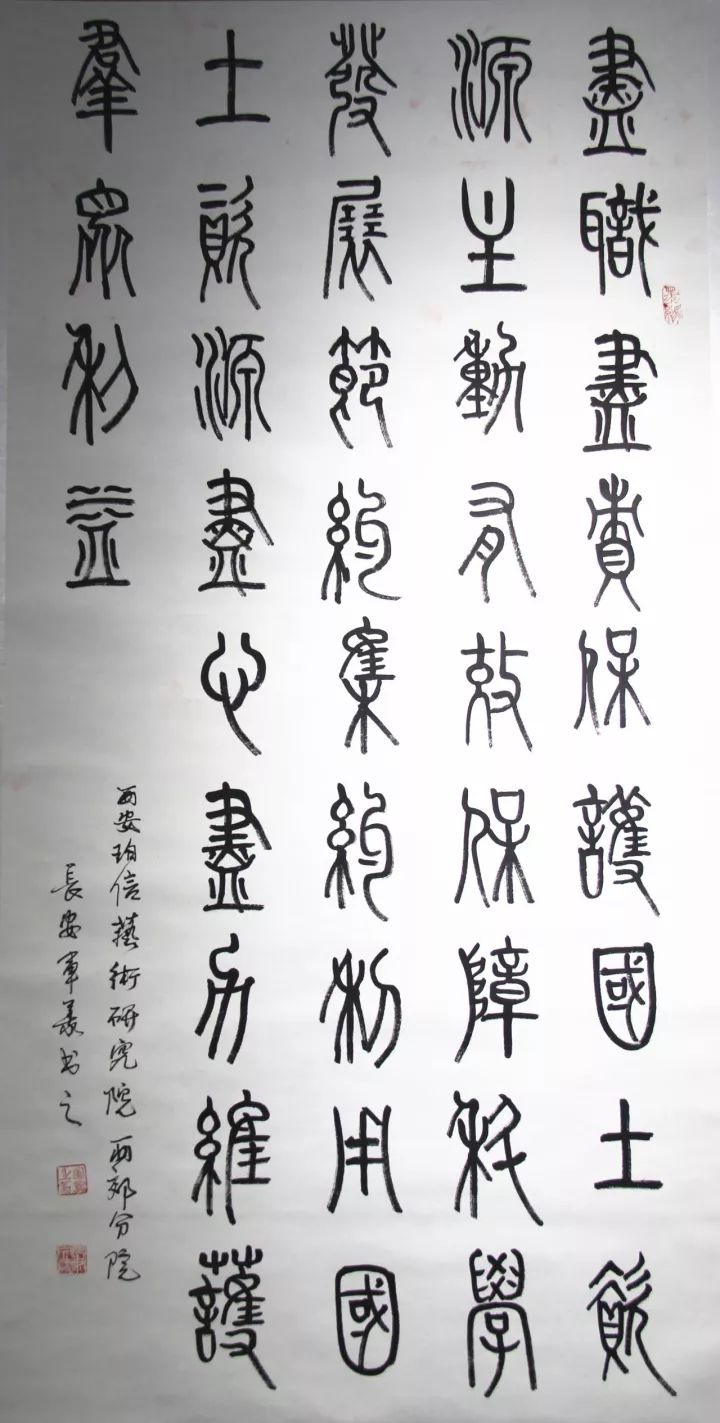 盡職盡責保護國土資
源主動有效保障科學
發展節約集約利用國
土資源盡心盡力維護
羣眾利益
西安珀信藝術研究院西郊分院
長安軍義书之